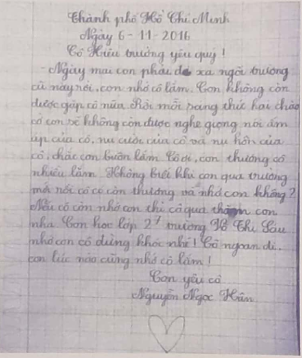 Thành phố Hồ Chí Minh
Ngày 6-11-2016
Cô Hiệu trưởng yêu quý!
- Ngày mai con phải xa ngôi trường
cũ này rồi, con nhớ cô lắm. Con không còn
được gặp cô nữa. Rồi mỗi sáng thứ hai chào
cờ con sẽ không còn được nghe giọng nói ấm
áp của cô, nụ cười của cô và nụ hôn của
cô, chắc con buồn lắm. Cô ơi, con thương cô
nhiều lắm. Không biết khi con qua trường
mới rồi cô có còn thương và nhớ con không?
Nếu cô còn nhớ con thì cô qua thăm con
nha. Con học lớp 2/ trường Võ Thị Sáu
nhớ con cô đừng khóc nhé! Cô ngoan đi..
con lúc nào cũng nhớ cô lắm!
Con yêu cô
Nguyễn Ngọc Hân